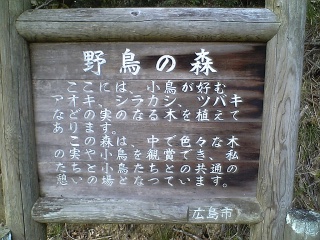 野鳥の森
ここには、小鳥が好む
アオキ、シラカシ、ツバキ
などの実のなる木を植えて
あります。
この森は、中で色々な木
の実や小鳥を観賞でき、私
たちと小鳥たちとの共通の
憩いの場となっています。
広島市